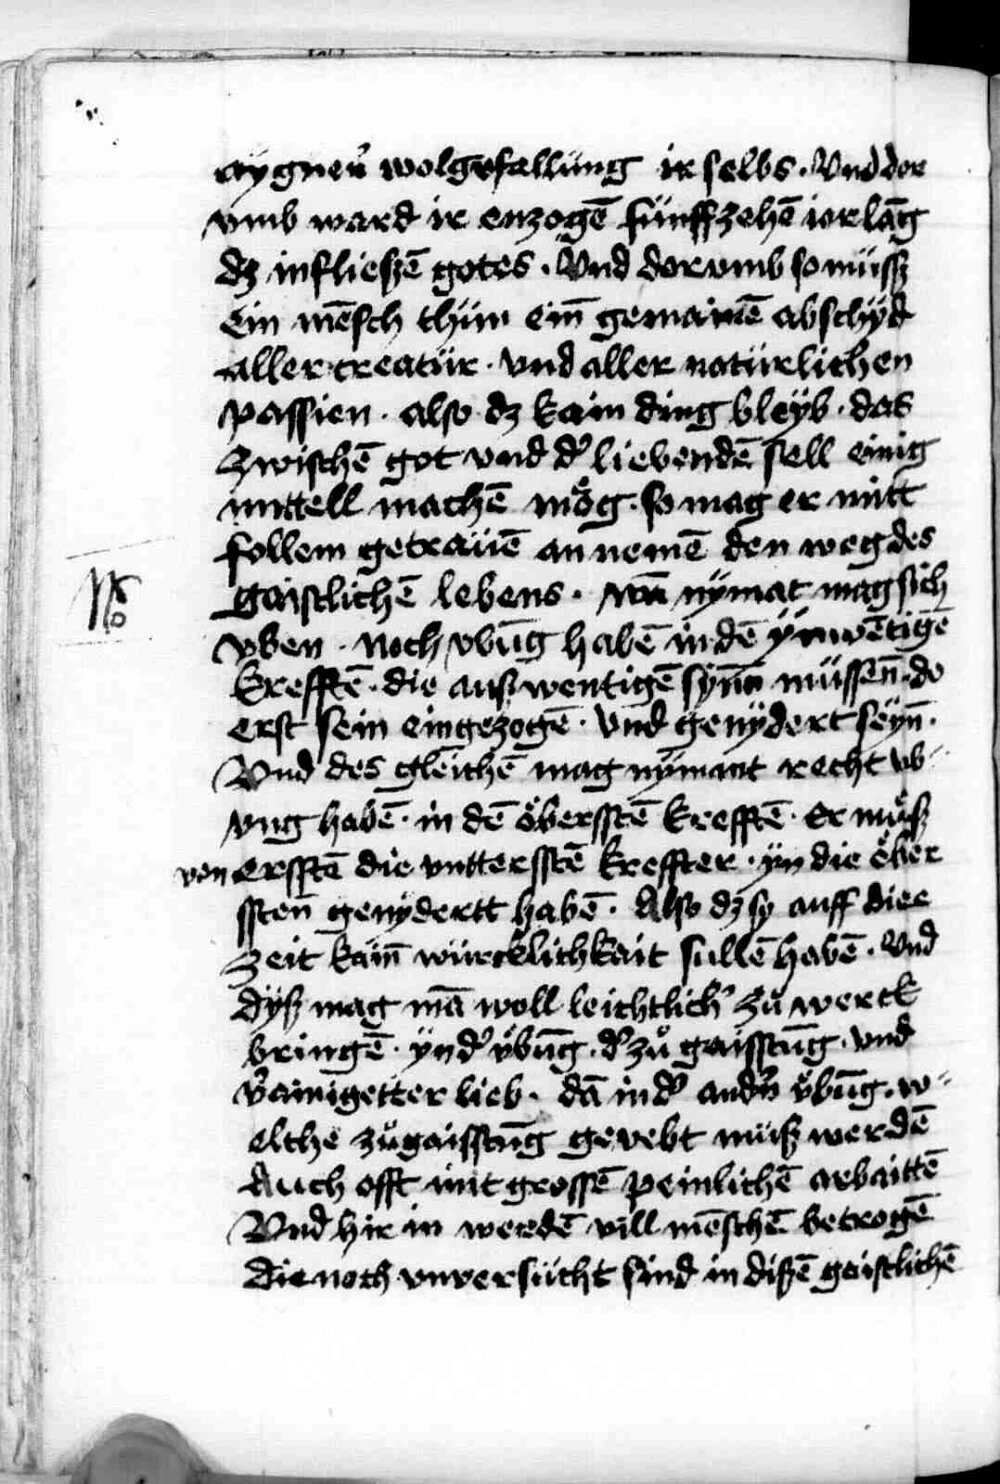 aygnen̄ wolgefallüng ir selbs · Vnd dor
vmb ward ir enzogē fünffzehē iar lāg
dz inflieszē gotes · Vnd dorvmb so müssz
Ein mēsch thün ein̄ gemainē abschyd
aller creatür · vnd aller natürlichen
passien · also dz kain ding bleÿb · das
zwischē got vnd d' liebendē sell einig
mittell machē mög · so mag er mitt
follem getraüē an nemē den weg des
gaistlichē lebens · wā nÿmāt mag sich
vben · noch vbūg habē in dē ÿnwētigē
krefftē · die auswentigē sÿnn müssen̄ do
erst sein eingezogē · vnd genÿdert seÿn̄ ·
Vnd des gleichē mag nÿmant recht vb
vng habē · in dē öberstē krefftē · Er müsz
von ersstē die vntterstē kreffter · ÿn die öber
sten̄ genÿdertt habē · Also dz sy auff diee
zeit kain̄ würcklichkait süllē habē · Vnd
dÿsz mag mā woll leichtlich' zů werck
bringē · ÿn d' vbūg · d' zů gaisstūg · vnd
v'ainigetter lieb · dā in d' andn̄ vbūg · w
elche zůgaisstūg geuebt müsz werdē
Auch offt mit grossē peinlichē arbaittē
Vnd hir in werdē vill mēschē betrogē
Die noch vnuersücht sind in diszē gaistlichē